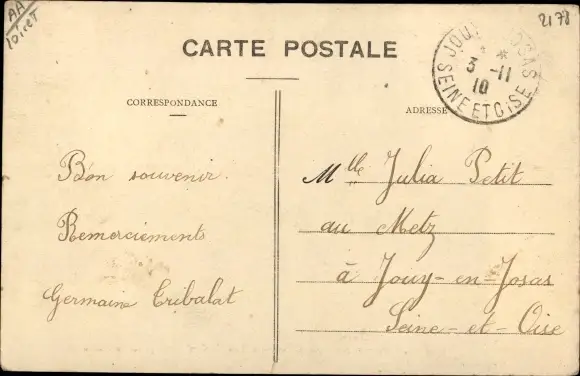 AA
loiret
2178
CARTE POSTALE
JOUY JOSAS
3 -11
10
SEINE ET OISE
CORRESPONDANCE
ADRESSE
Bon souvenir.
Remerciements
Germaine Tribalat
Mlle Julia Petit
au Metz
à Jouy-en-Josas
Seine-et-Oise